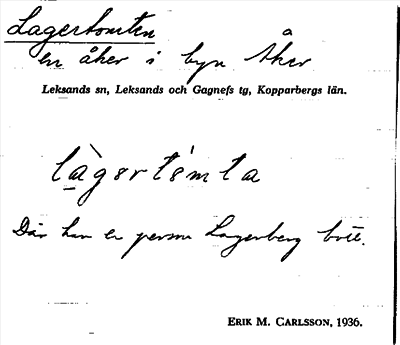 Lagertomten
en åker i byn Åker
Leksands sn, Leksands och Gagnefs tg, Kopparbergs län.
làgərtómta
Där har en person Lagerberg bott.
ERIK M. CARLSSON, 1936.